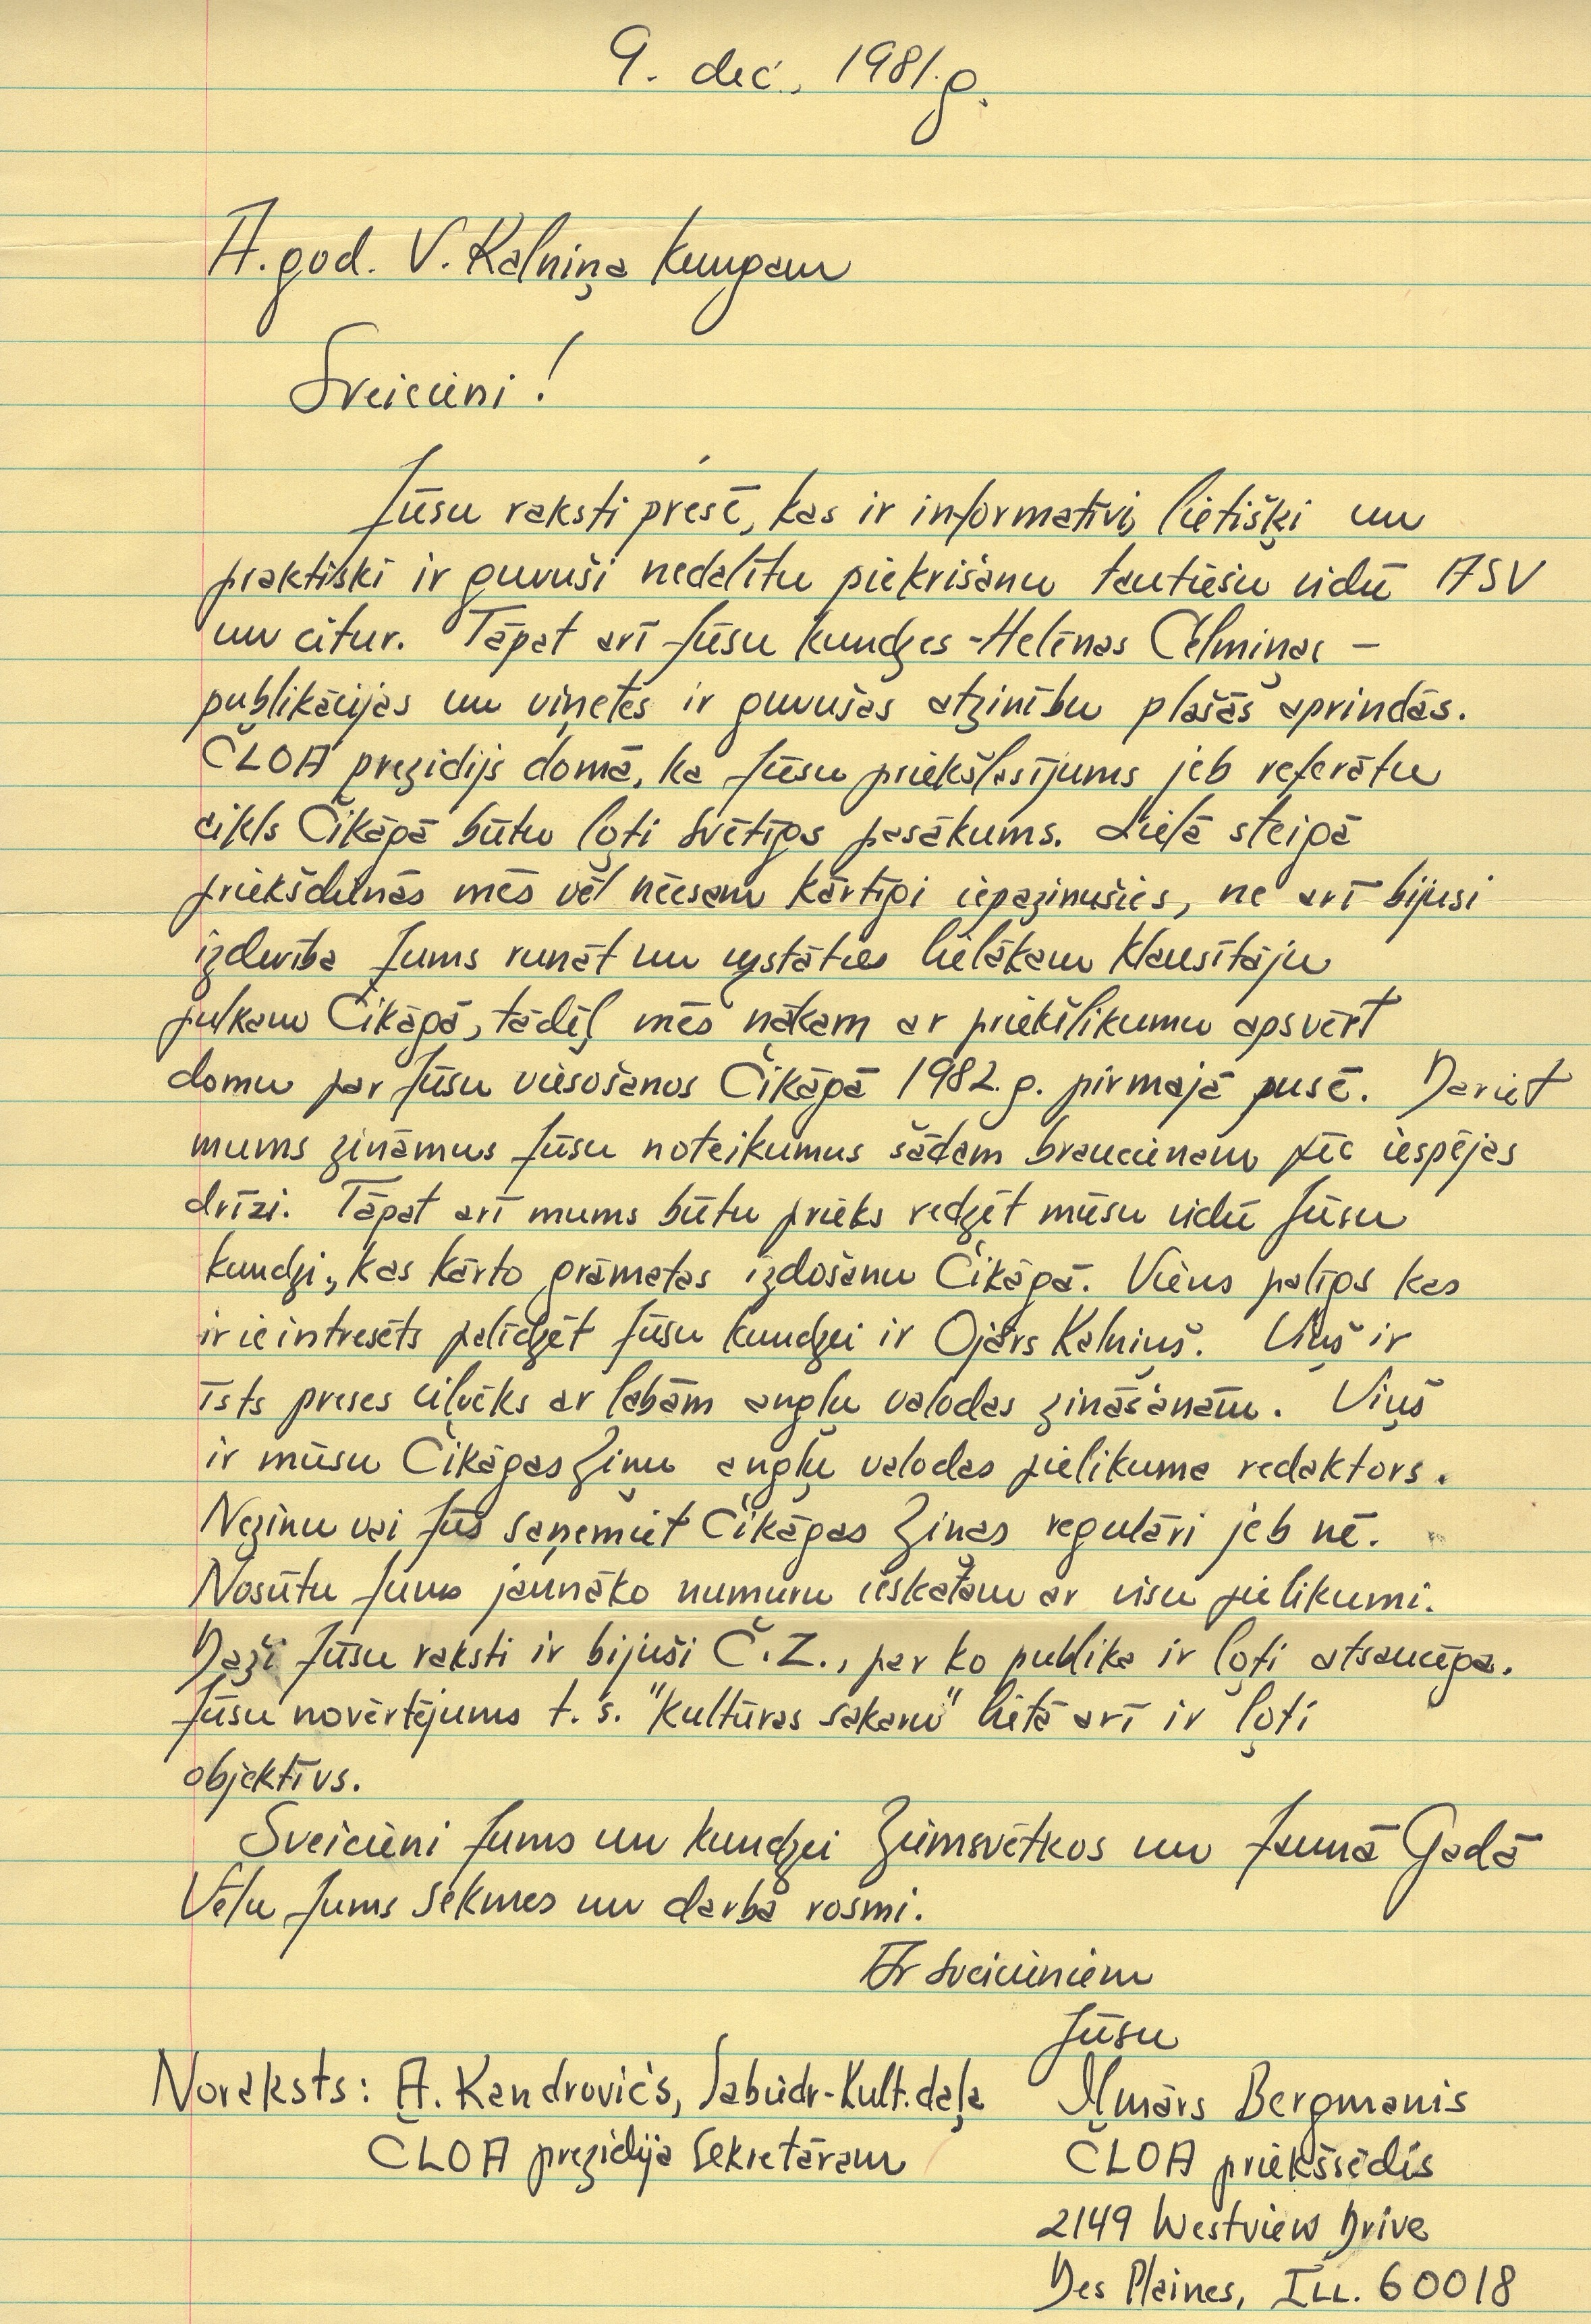 9. dec., 1981.g.
A. god. V. Kalniņa kungam
Sveicieni!
Jūsu raksti presē, kas ir informatīvi, lietišķi un
praktiski ir guvuši nedalītu piekrišanu tautiešu vidū ASV
un citur. Tāpat arī Jūsu kundzes - Helēnas Celmiņas -
publikācijas un viņetes ir guvušas atzinību plašās aprindās.
ČLOA prezidijs domā, ka Jūsu priekšlasījums jeb referātu
cikls Čikāgā būtu ļoti svētīgs pasākums. Lielā steigā
priekšdienās mēs vēl neesam kārtīgi iepazinušies, ne arī bijusi
izdevība Jums runāt un uzstāties lielākam klausītāju
pulkam Čikāgā, tādēļ mēs nākam ar priekšlikumu apsvērt
domu par Jūsu viesošanos Čikāgā 1982.g. pirmajā pusē. Dariet
mums zināmus Jūsu noteikumus šādam braucienam pēc iespējas
drīzi. Tāpat arī mums būtu prieks redzēt mūsu vidū Jūsu
kundzi, kas kārto grāmatas izdošanu Čikāgā. Viens palīgs kas
ir ieintresēts palīdzēt Jūsu kundzei ir Ojārs Kalniņš. Viņš ir
īsts preses cilvēks ar labām angļu valodas zināšanām. Viņš
ir mūsu Čikāgas Ziņu angļu valodas pielikuma redaktors.
Nezinu vai Jūs saņemiet Čikāgas Ziņas regulāri jeb nē.
Nosūtu Jums jaunāko numuru ieskatam ar visu pielikumi.
Daži Jūsu raksti ir bijuši Č.Z., par ko publika ir ļoti atsaucīga.
Jūsu novērtējums t. s. "Kultūras sakaru" lietā arī ir ļoti
objektīvs.
Sveicieni Jums un kundzei Ziemsvētkos un Jaunā Gadā
Vēlu Jums sekmes un darba rosmi.
Ar sveicieniem
Jūsu
Noraksts: A. Kandrovičs, Sabiedr-Kult. daļa
ČLOA prezidija sekretāram
Ilmārs Bergmanis
ČLOA priekšsēdis
2149 Westview Drive
Des Plaines, ILL. 60018